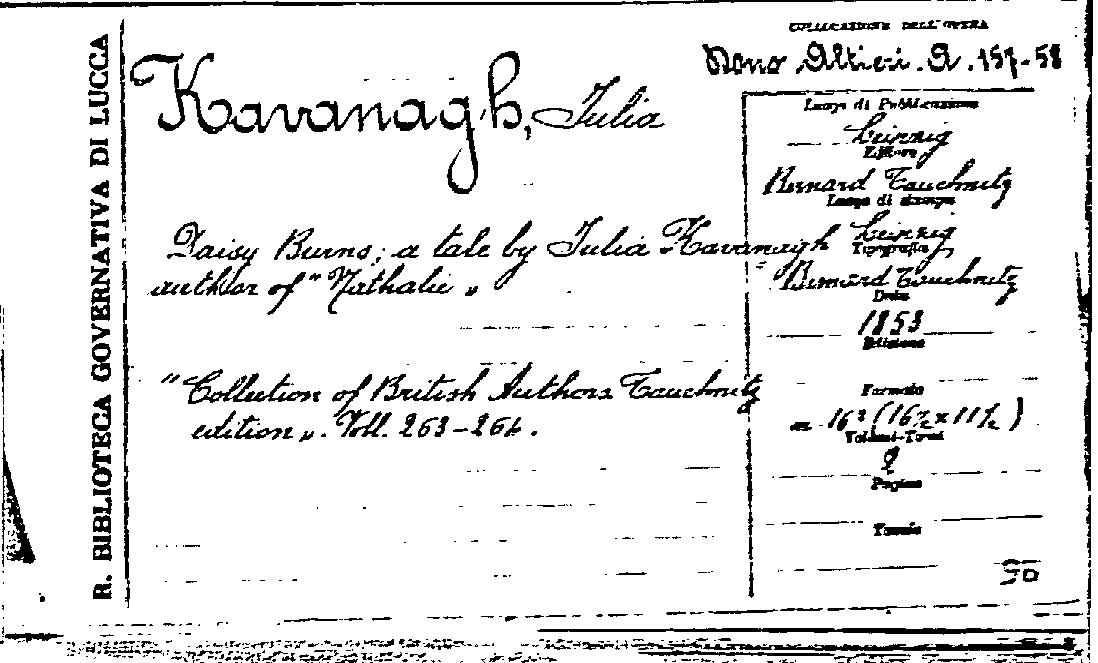 R. BIBLIOTECA GOVERNATIVA DI LUCCA
COLLOCAZIONE DELL'OPERA
Dono Altieri. A. 157-58
Kavanagh, Julia
Daisy Burns; a tale by Julia Kavanagh
author of "Nathalie"
"Collection of British Authors Tauchnitz
edition". Voll. 263-264.
Luogo di Pubblicazione
Leipzig
Editore
Bernard Tauchnitz
Luogo di stampa
Leipzig
Tipografia
Bernard Tauchnitz
Data
1853
Edizione
Formato
in 16º (16½ x 11½)
Volumi-Tomi
2
Pagine
Tavole